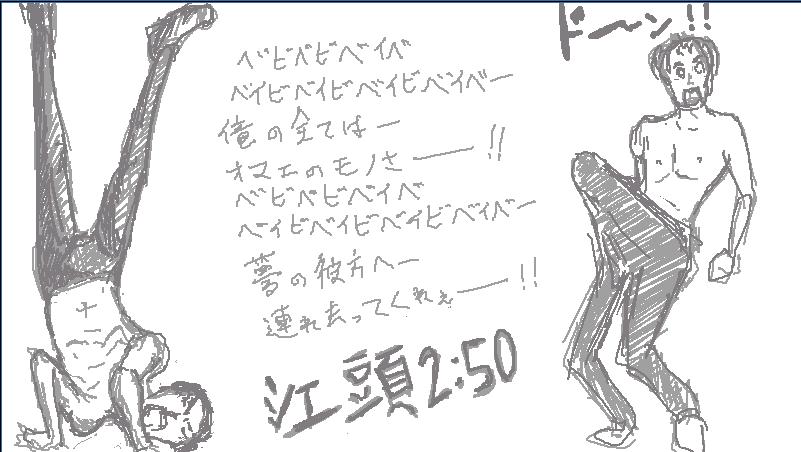 ベビベビベイベ
ベイビベイビベイビベイベー
俺の全てはー
オマエのモノさー!!
ベビベビベイベ
ベイビベイビベイビベイベー
夢の彼方へー
連れ去ってくれぇー!!
江頭2:50
ドーン!!